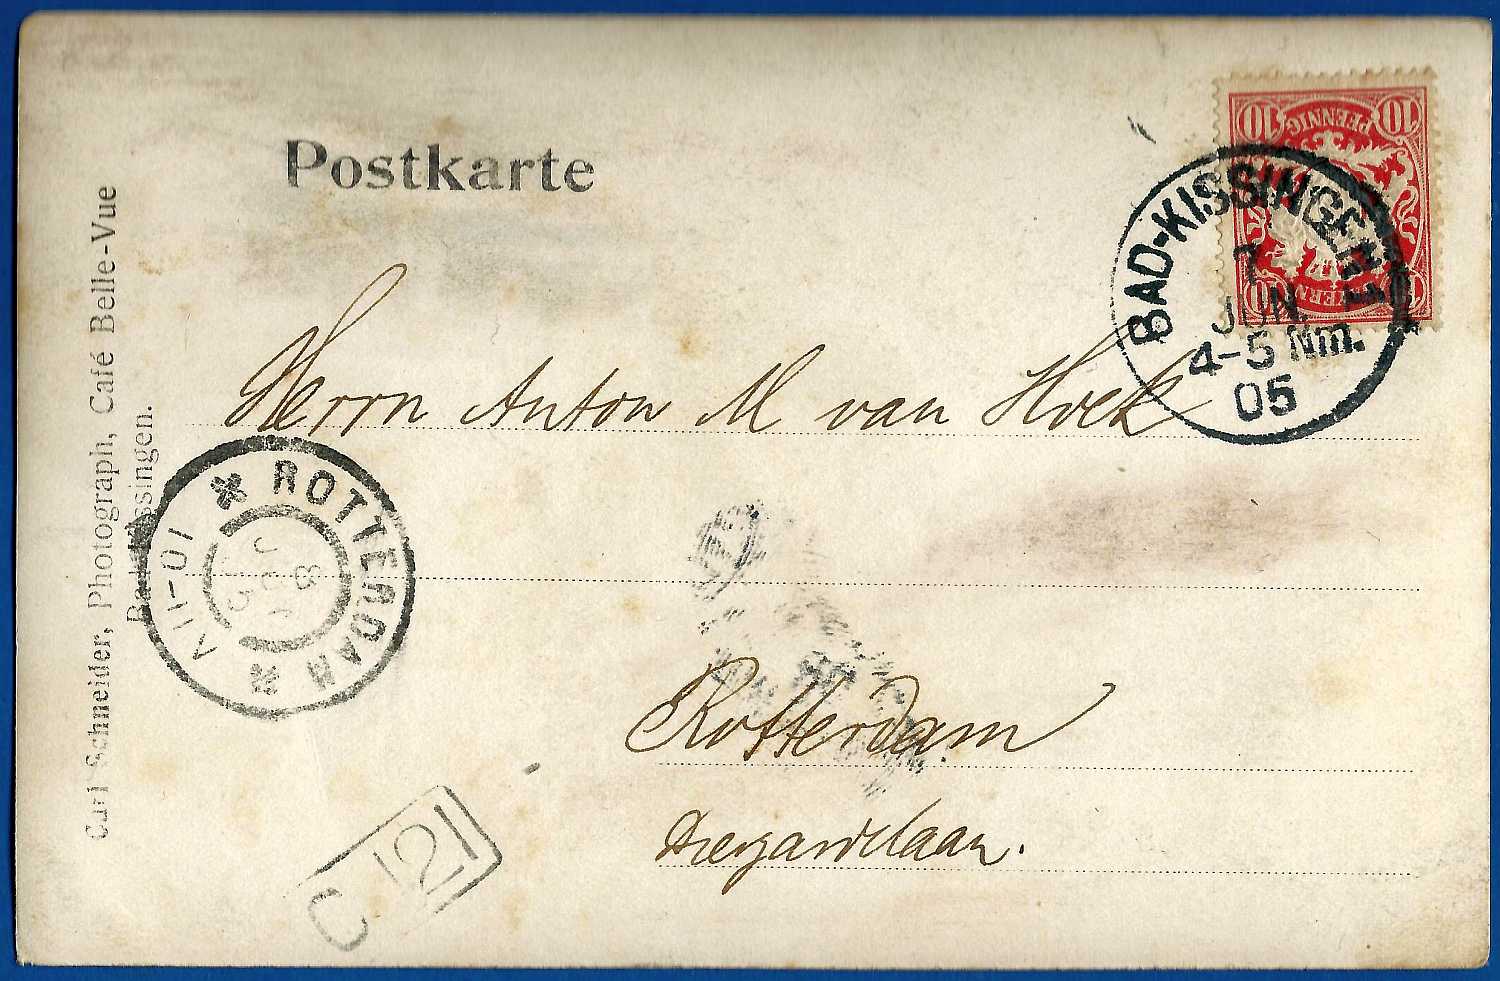 Postkarte
10 PFENNIG 10
BAYERN
BAD-KISSINGEN 1
7
JUN.
4-5 Nm.
05
Carl Schneider, Photograph, Café Belle-Vue
Bad Kissingen.
Herrn Anton M van Hoek
ROTTERDAM
8 JUN 05
10-11V
Rotterdam
Diergaardelaan.
C 121